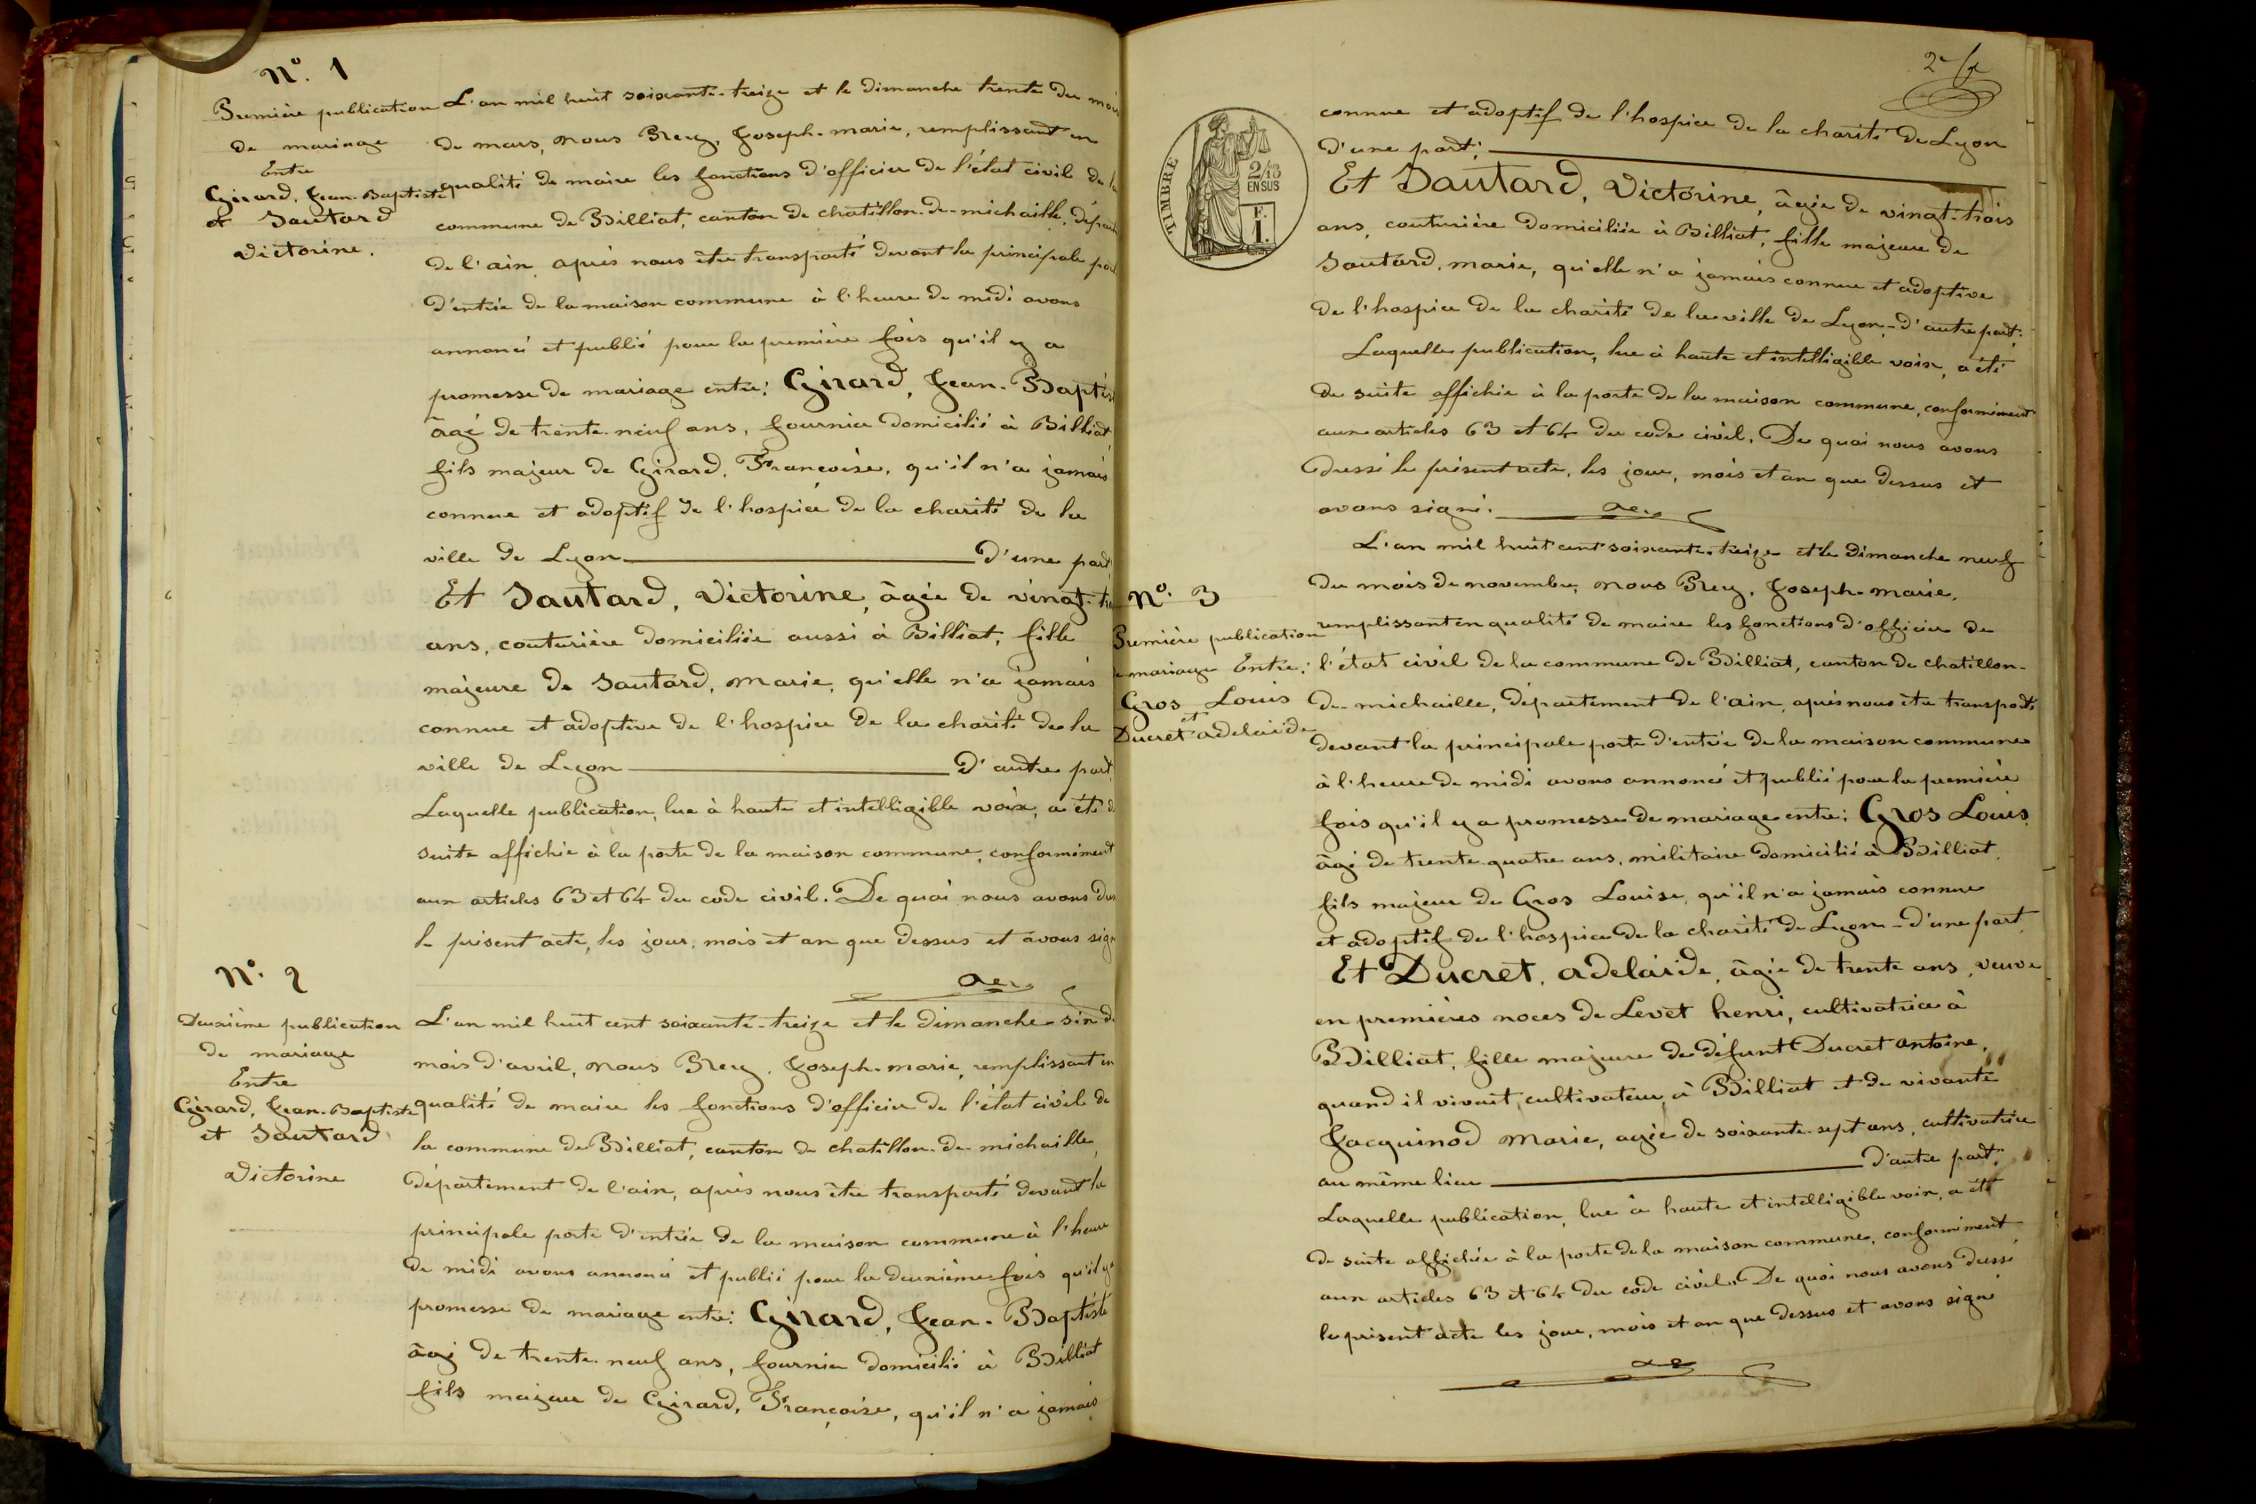 N°. 1
Première publication
de mariage
Entre
Girard, Jean-Baptiste
et Sautard
Victorine.
L'an mil huit soixante-treize et le dimanche trente du mois
de mars, nous Brey, Joseph-marie, remplissant en
qualité de maire les fonctions d'officier de l'état civil de la
commune de Billiat, canton de chatillon-de-michaille, dépar
de l'ain, après nous être transporté devant la principale port
d'entrée de la maison commune à l'heure de midi avons
annoncé et publié pour la première fois qu'il y a
promesse de mariage entre: Girard, Jean-Baptis
âgé de trente-neuf ans, fournier domicilié à Billiat,
fils majeur de Girard, Françoise, qu'il n'a jamais
connue et adoptif de l'hospice de la charité de la
ville de Lyon d'une part
Et Sautard, Victorine, âgée de vingt-tr
ans, couturière domiciliée aussi à Billiat, fille
majeure de Sautard, marie, qu'elle n'a jamais
connue et adoptive de l'hospice de la charité de la
ville de Lyon d'autre part
Laquelle publication, lue à haute et intelligible voix, a été d
suite affichée à la porte de la maison commune, conformément
aux articles 63 et 64 du code civil. De quoi nous avons dres
le présent acte, les jour, mois et an que dessus et avons sign
N°. 2
Deuxième publication
de mariage
Entre
Girard, Jean-Baptiste
et Sautard
Victorine
L'an mil huit cent soixante-treize et le dimanche six d
mois d'avril, nous Brey, Joseph-marie, remplissant en
qualité de maire les fonctions d'officier de l'état civil de
la commune de Billiat, canton de chatillon-de-michaille,
département de l'ain, après nous être transporté devant la
principale porte d'entrée de la maison commune à l'heure
de midi avons annoncé et publié pour la deuxième fois qu'il y a
promesse de mariage entre: Girard, Jean-Baptiste
âgé de trente-neuf ans, fournier domicilié à Billiat
fils majeur de Girard, Françoise, qu'il n'a jamais
2e
TIMBRE
2/10
EN SUS
connue et adoptif de l'hospice de la charité de Lyon
d'une part;
Et Sautard, Victorine, âgée de vingt-trois
ans, couturière domiciliée à Billiat, fille majeure de
Sautard, marie, qu'elle n'a jamais connue et adoptive
de l'hospice de la charité de la ville de Lyon - d'autre part;
Laquelle publication, lue à haute et intelligible voix, a été
de suite affichée à la porte de la maison commune, conformément
aux articles 63 et 64 du code civil. De quoi nous avons
dressé le présent acte, les jour, mois et an que dessus et
avons signé.
N°. 3
Première publication
de mariage Entre:
Gros Louis
et
Ducret adelaide
L'an mil huit cent soixante-treize et le dimanche neuf
du mois de novembre, nous Brey, Joseph-marie,
remplissant en qualité de maire les fonctions d'officier de
l'état civil de la commune de Billiat, canton de chatillon-
de-michaille, département de l'ain, après nous être transporté
devant la principale porte d'entrée de la maison commune
à l'heure de midi avons annoncé et publié pour la première
fois qu'il y a promesse de mariage entre: Gros Louis
âgé de trente-quatre ans, militaire domicilié à Billiat,
fils majeur de Gros Louise, qu'il n'a jamais connue
et adoptif de l'hospice de la charité de Lyon - d'une part
Et Ducret, adelaide, âgée de trente ans, veuve
en premières noces de Levet henri, cultivatrice à
Billiat, fille majeure de défunt Ducret antoine,
quand il vivait, cultivateur à Billiat et de vivante
Jacquinod Marie, agée de soixante-sept ans, cultivatrice
au même lieu d'autre part;
Laquelle publication, lue à haute et intelligible voix, a été
de suite affichée à la porte de la maison commune, conformément
aux articles 63 et 64 du code civil. De quoi nous avons dressé
le présent acte les jour, mois et an que dessus et avons signé